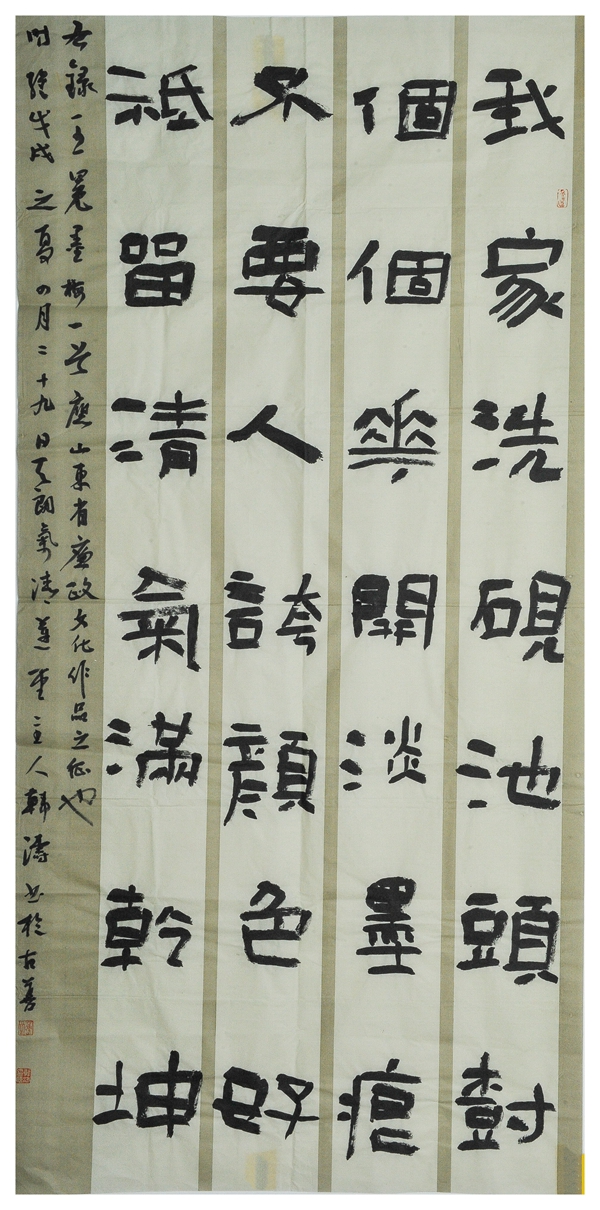 我家洗硯池頭尌
個個華開淡墨痕
不要人誇顏色好
祗留清氣滿乾坤
右錄王冕墨梅一首應山東省廉政文化作品之征也
时維戊戌之夏四月二十九日天朗氣清主人韓濤書於古善